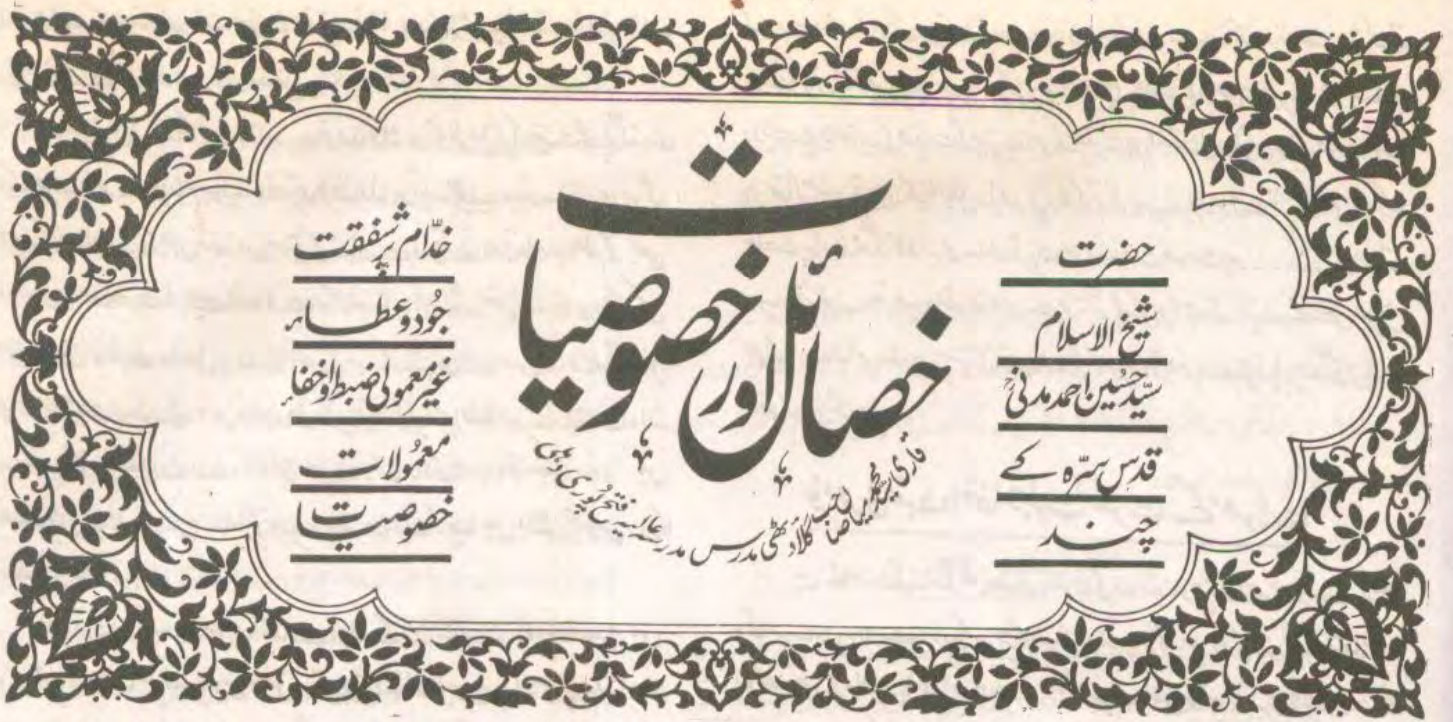 حضرت
شیخ الاسلام
سیّد حسین احمد مدنیؒ
قدس سرّہ کے
چند
خصائل اور خصوصیات
قاری محمد میاں صاحب گلاؤٹھی مدرس مدرسہ عالیہ فتح پوری دہلی
خدّام پر شفقت
جُود و عطا
غیر معمولی ضبط و اخفا
معمُولات
خصوصیات